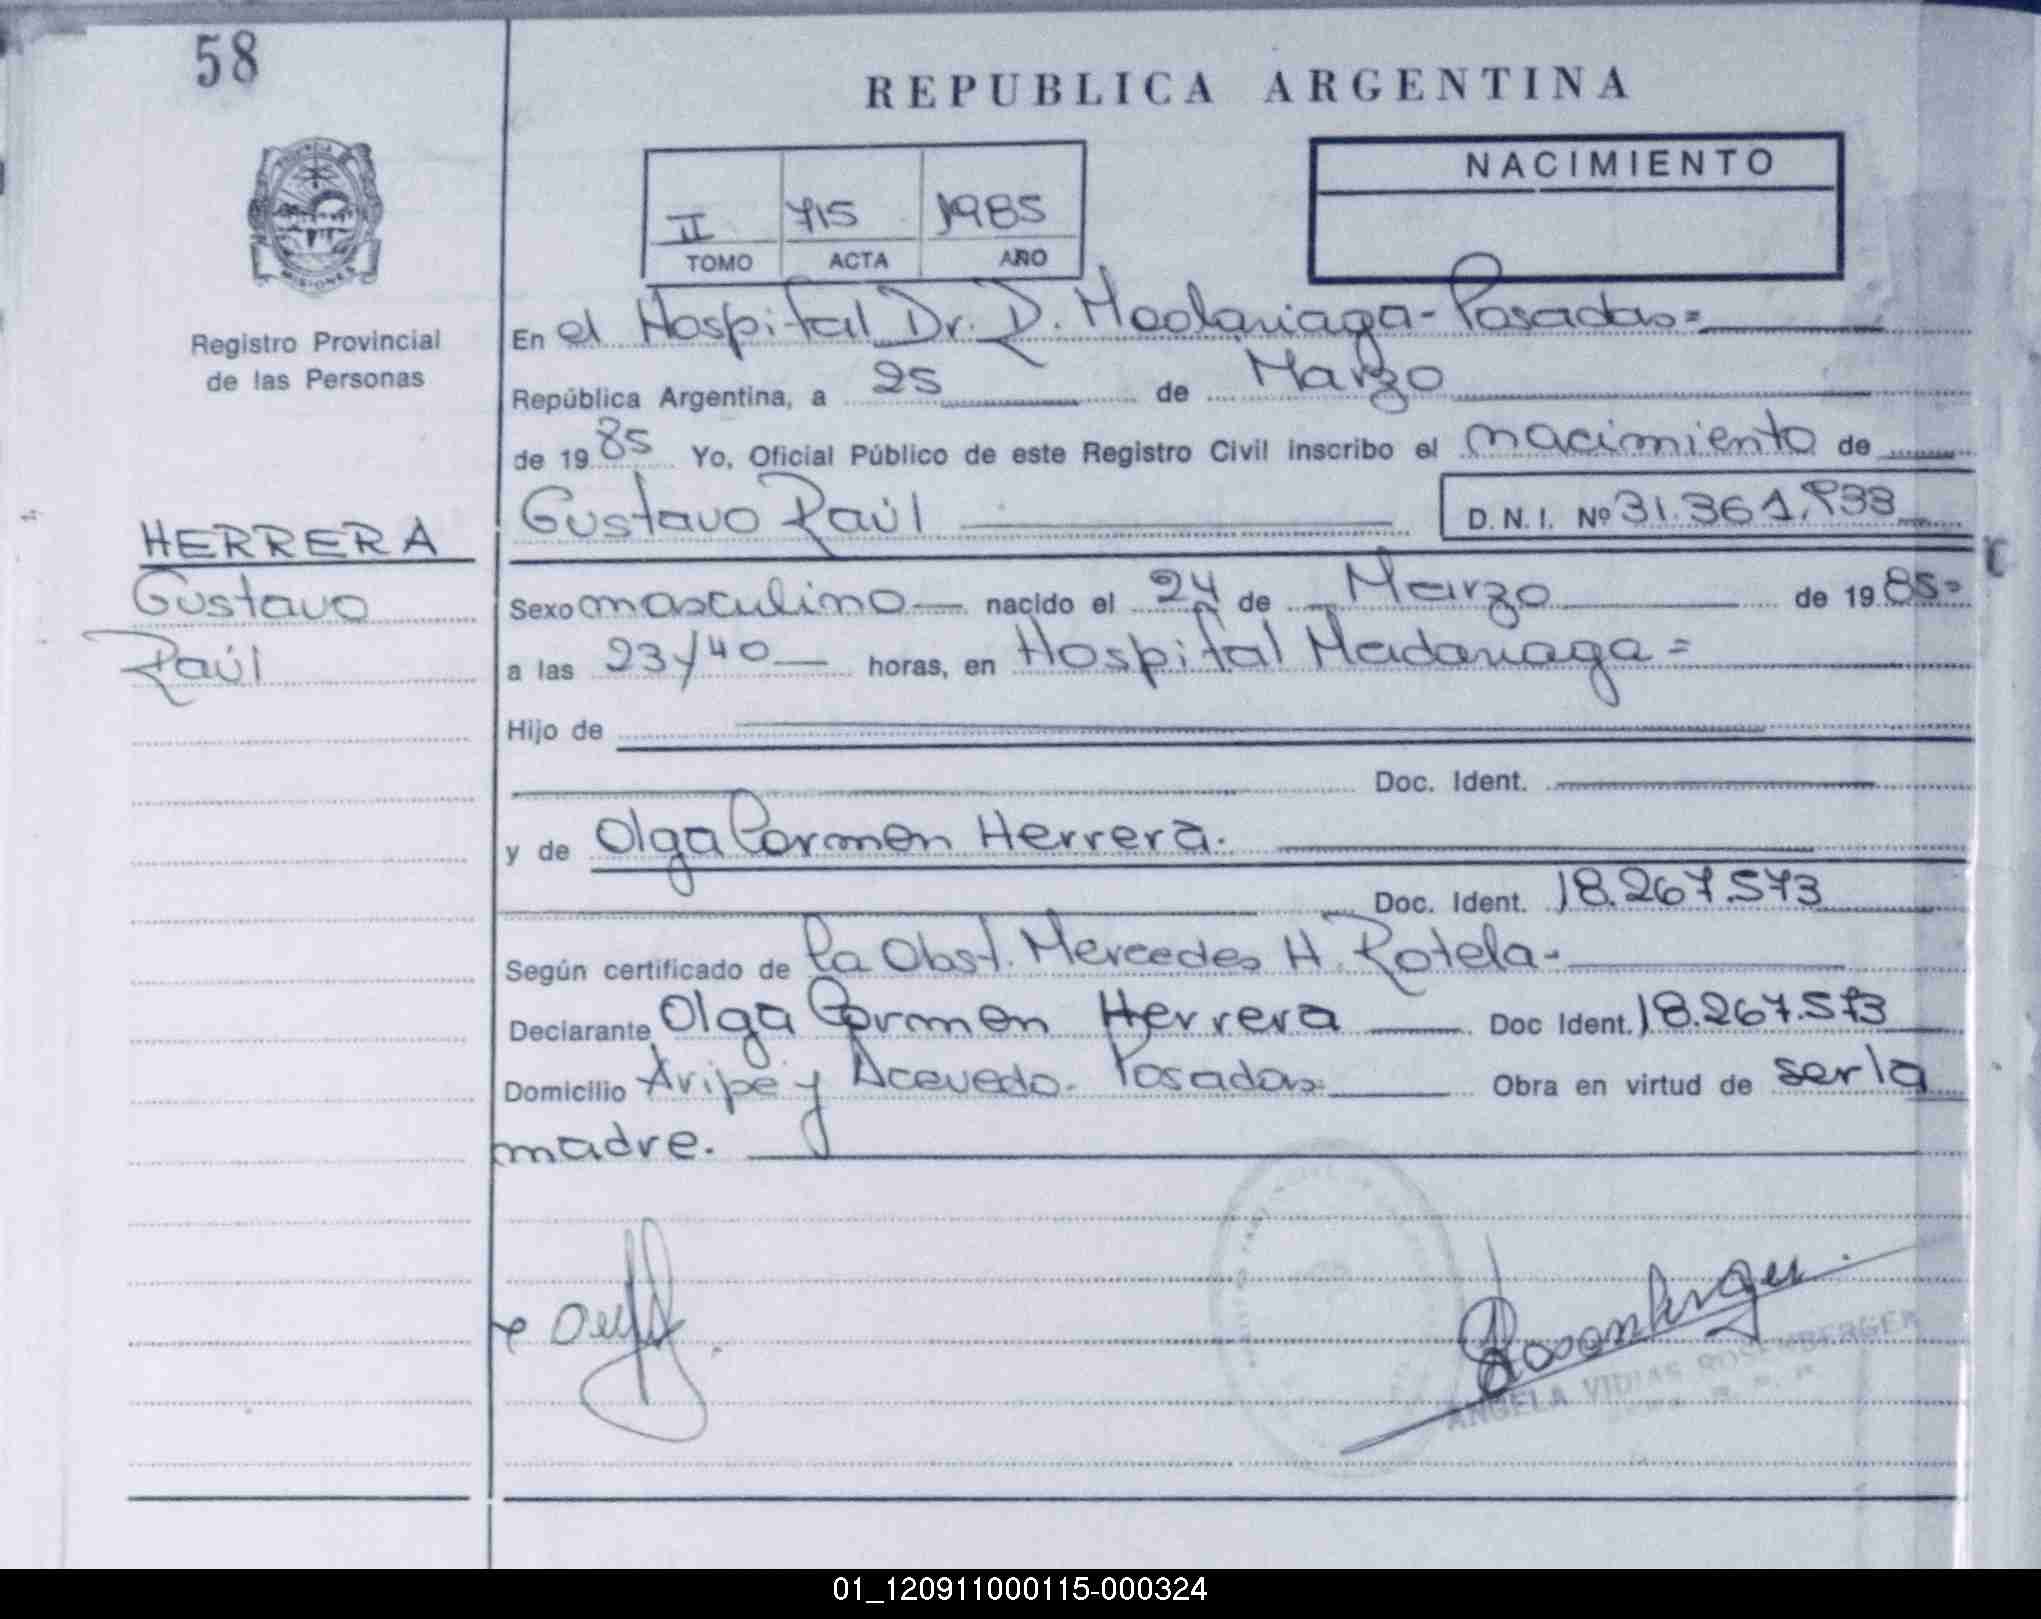 58
REPUBLICA ARGENTINA
PROVINCIA
MISIONES
Registro Provincial
de las Personas
II 715 1985
TOMO ACTA AÑO
NACIMIENTO
En el Hospital Dr. R. Madariaga - Posadas =
República Argentina, a 25 de Marzo
de 1985 Yo, Oficial Público de este Registro Civil inscribo el nacimiento de
Gustavo Raúl D.N.I. Nº 31.361.933
HERRERA
Gustavo
Raúl
Sexo masculino nacido el 24 de Marzo de 1985=
a las 23/40 horas, en Hospital Madariaga =
Hijo de
Doc. Ident.
y de Olga Carmen Herrera.
Doc. Ident. 18.267.573
Según certificado de la Obst. Mercedes H. Rotela -
Declarante Olga Carmen Herrera Doc Ident. 18.267.573
Domicilio Aripe y Acevedo - Posadas Obra en virtud de ser la
madre.
Rosemberger
ANGELA VIDIAS ROSEMBERGER
01_120911000115-000324